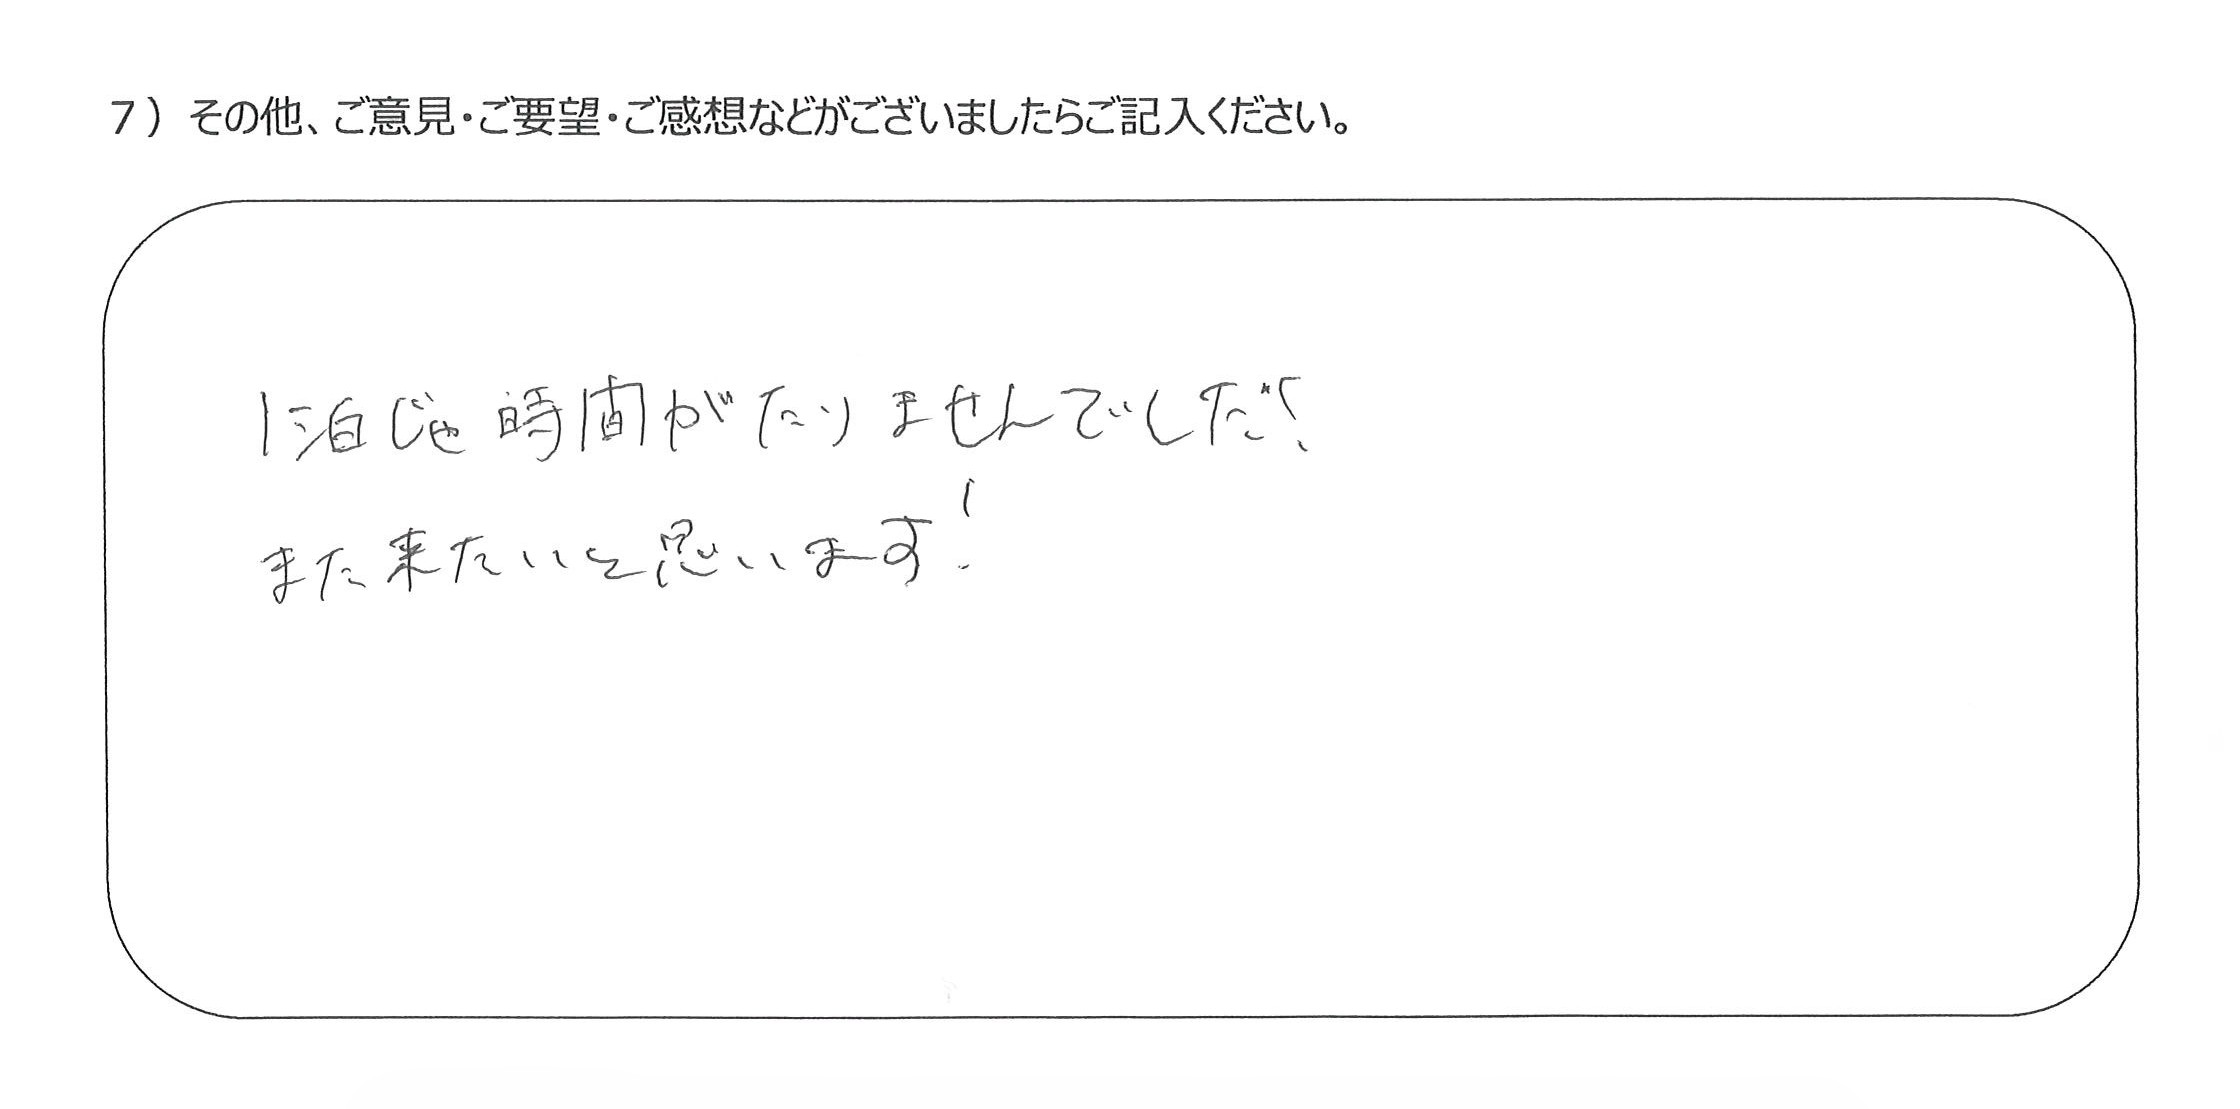 7）その他、ご意見・ご要望・ご感想などがございましたらご記入ください。
1泊じゃ時間がたりませんでした!
また来たいと思います!